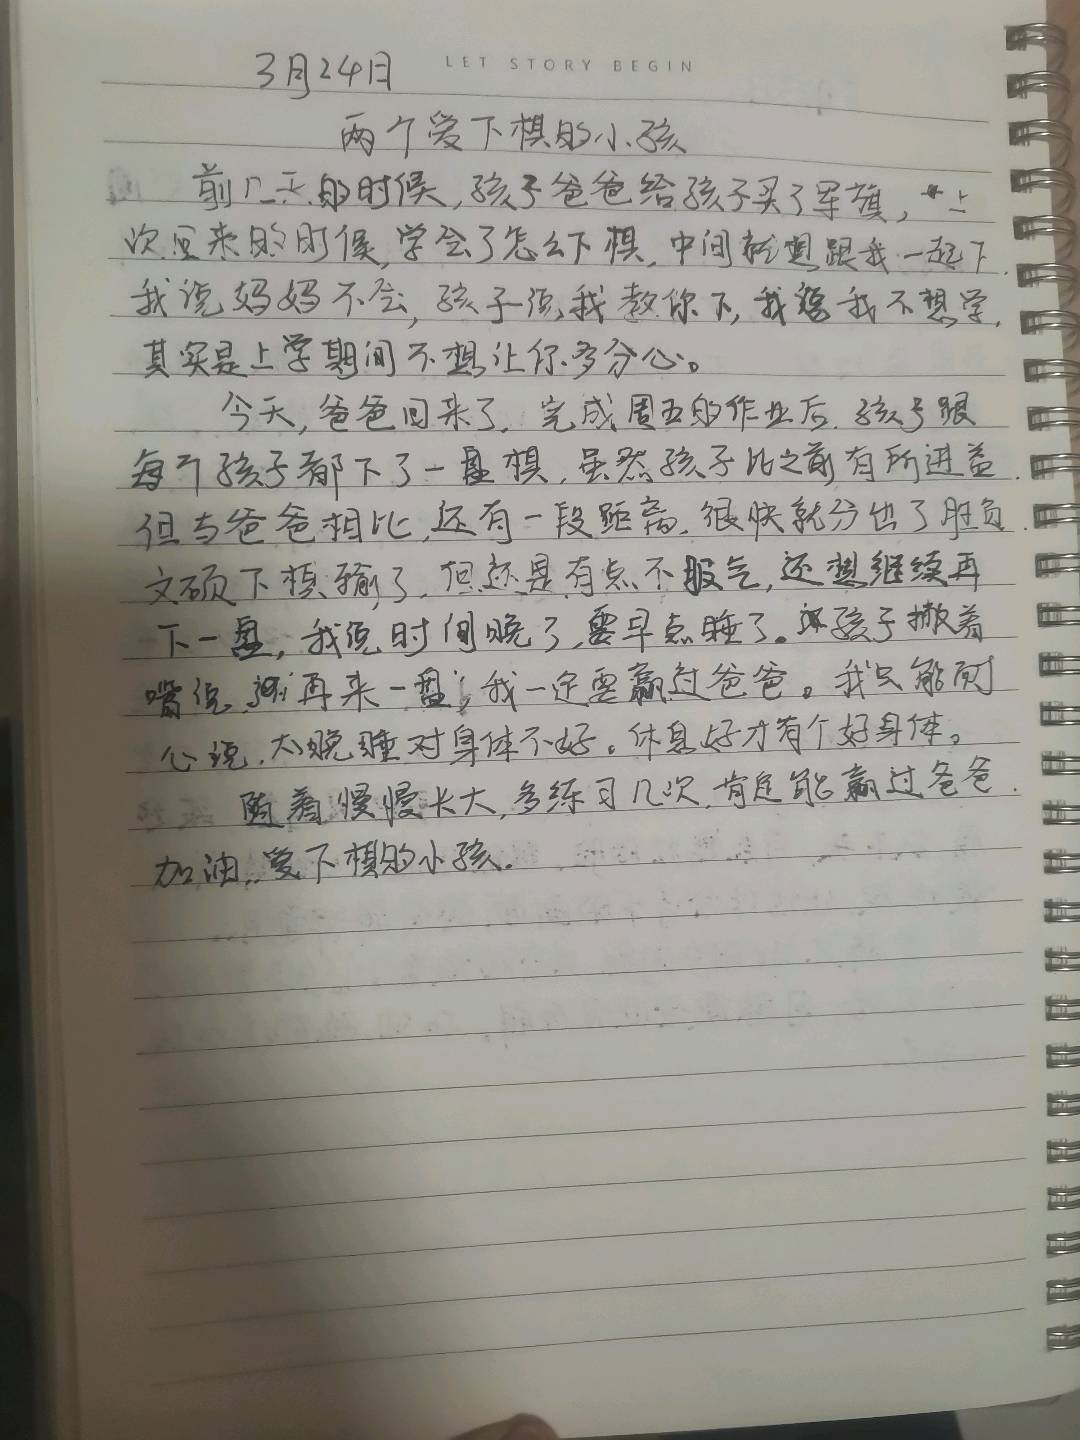 LET STORY BEGIN
3月24日
两个爱下棋的小孩
前几天的时候,孩子爸爸给孩子买了军旗,上
次回来的时候,学会了怎么下棋,中间就想跟我一起下,
我说妈妈不会,孩子说,我教你下,我说我不想学,
其实是上学期间不想让你多分心。
今天,爸爸回来了,完成周五的作业后,孩子跟
每个孩子都下了一盘棋,虽然孩子比之前有所进益,
但与爸爸相比,还有一段距离,很快就分出了胜负,
文硕下棋输了,但还是有点不服气,还想继续再
下一盘,我说时间晚了,要早点睡了。孩子撇着
嘴说,再来一盘,我一定要赢过爸爸。我只能耐
心说,太晚睡对身体不好。休息好才有个好身体。
随着慢慢长大,多练习几次,肯定能赢过爸爸.
加油,爱下棋的小孩.